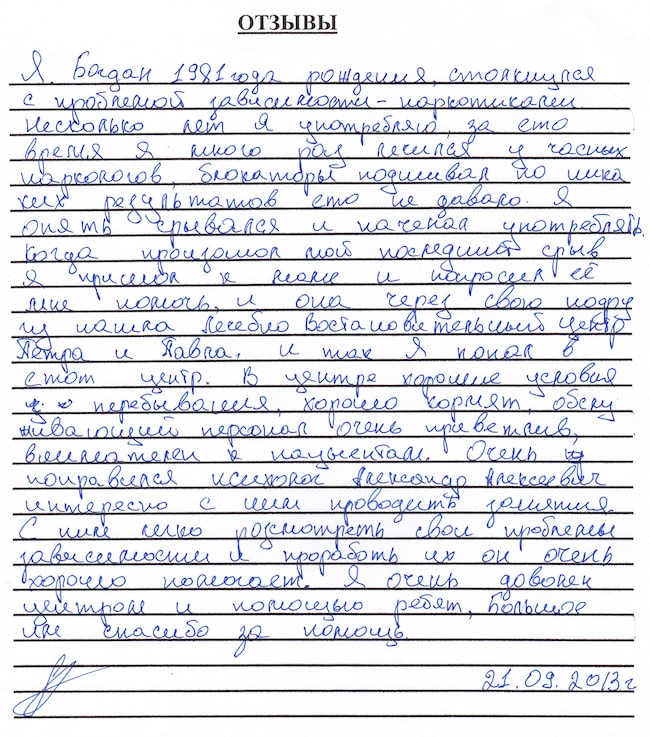 ОТЗЫВЫ
Я, Богдан 1981 года рождения, столкнулся
с проблемой зависимости - наркотиками
Несколько лет я употребляю, за ето
время я много раз лечился у часных
наркологов, блокаторы подшивал но ника
ких результатов ето не давало. Я
опять срывался и наченал употреблять.
Когда произошол мой последний срыв
я пришол к маме и попросил её
мне помочь, и она через свою подру
гу нашла Лечебно Востановительный Центр
Петра и Павла. и так я попал в
етот центр. В центре хорошие условия
перебывания, хорошо кормят, обслу
живающий персонал очень приветлив,
внимателен к пациентам. Очень
понравился психолог Александр Алексеевич
интересно с ним проводить занятия.
С ним легко розсмотреть свои проблемы
зависимости и проработь их он очень
хорошо помогает. Я очень доволен
центром и помощью ребят, Большое
им спасибо за помощь.
21.09.2013г